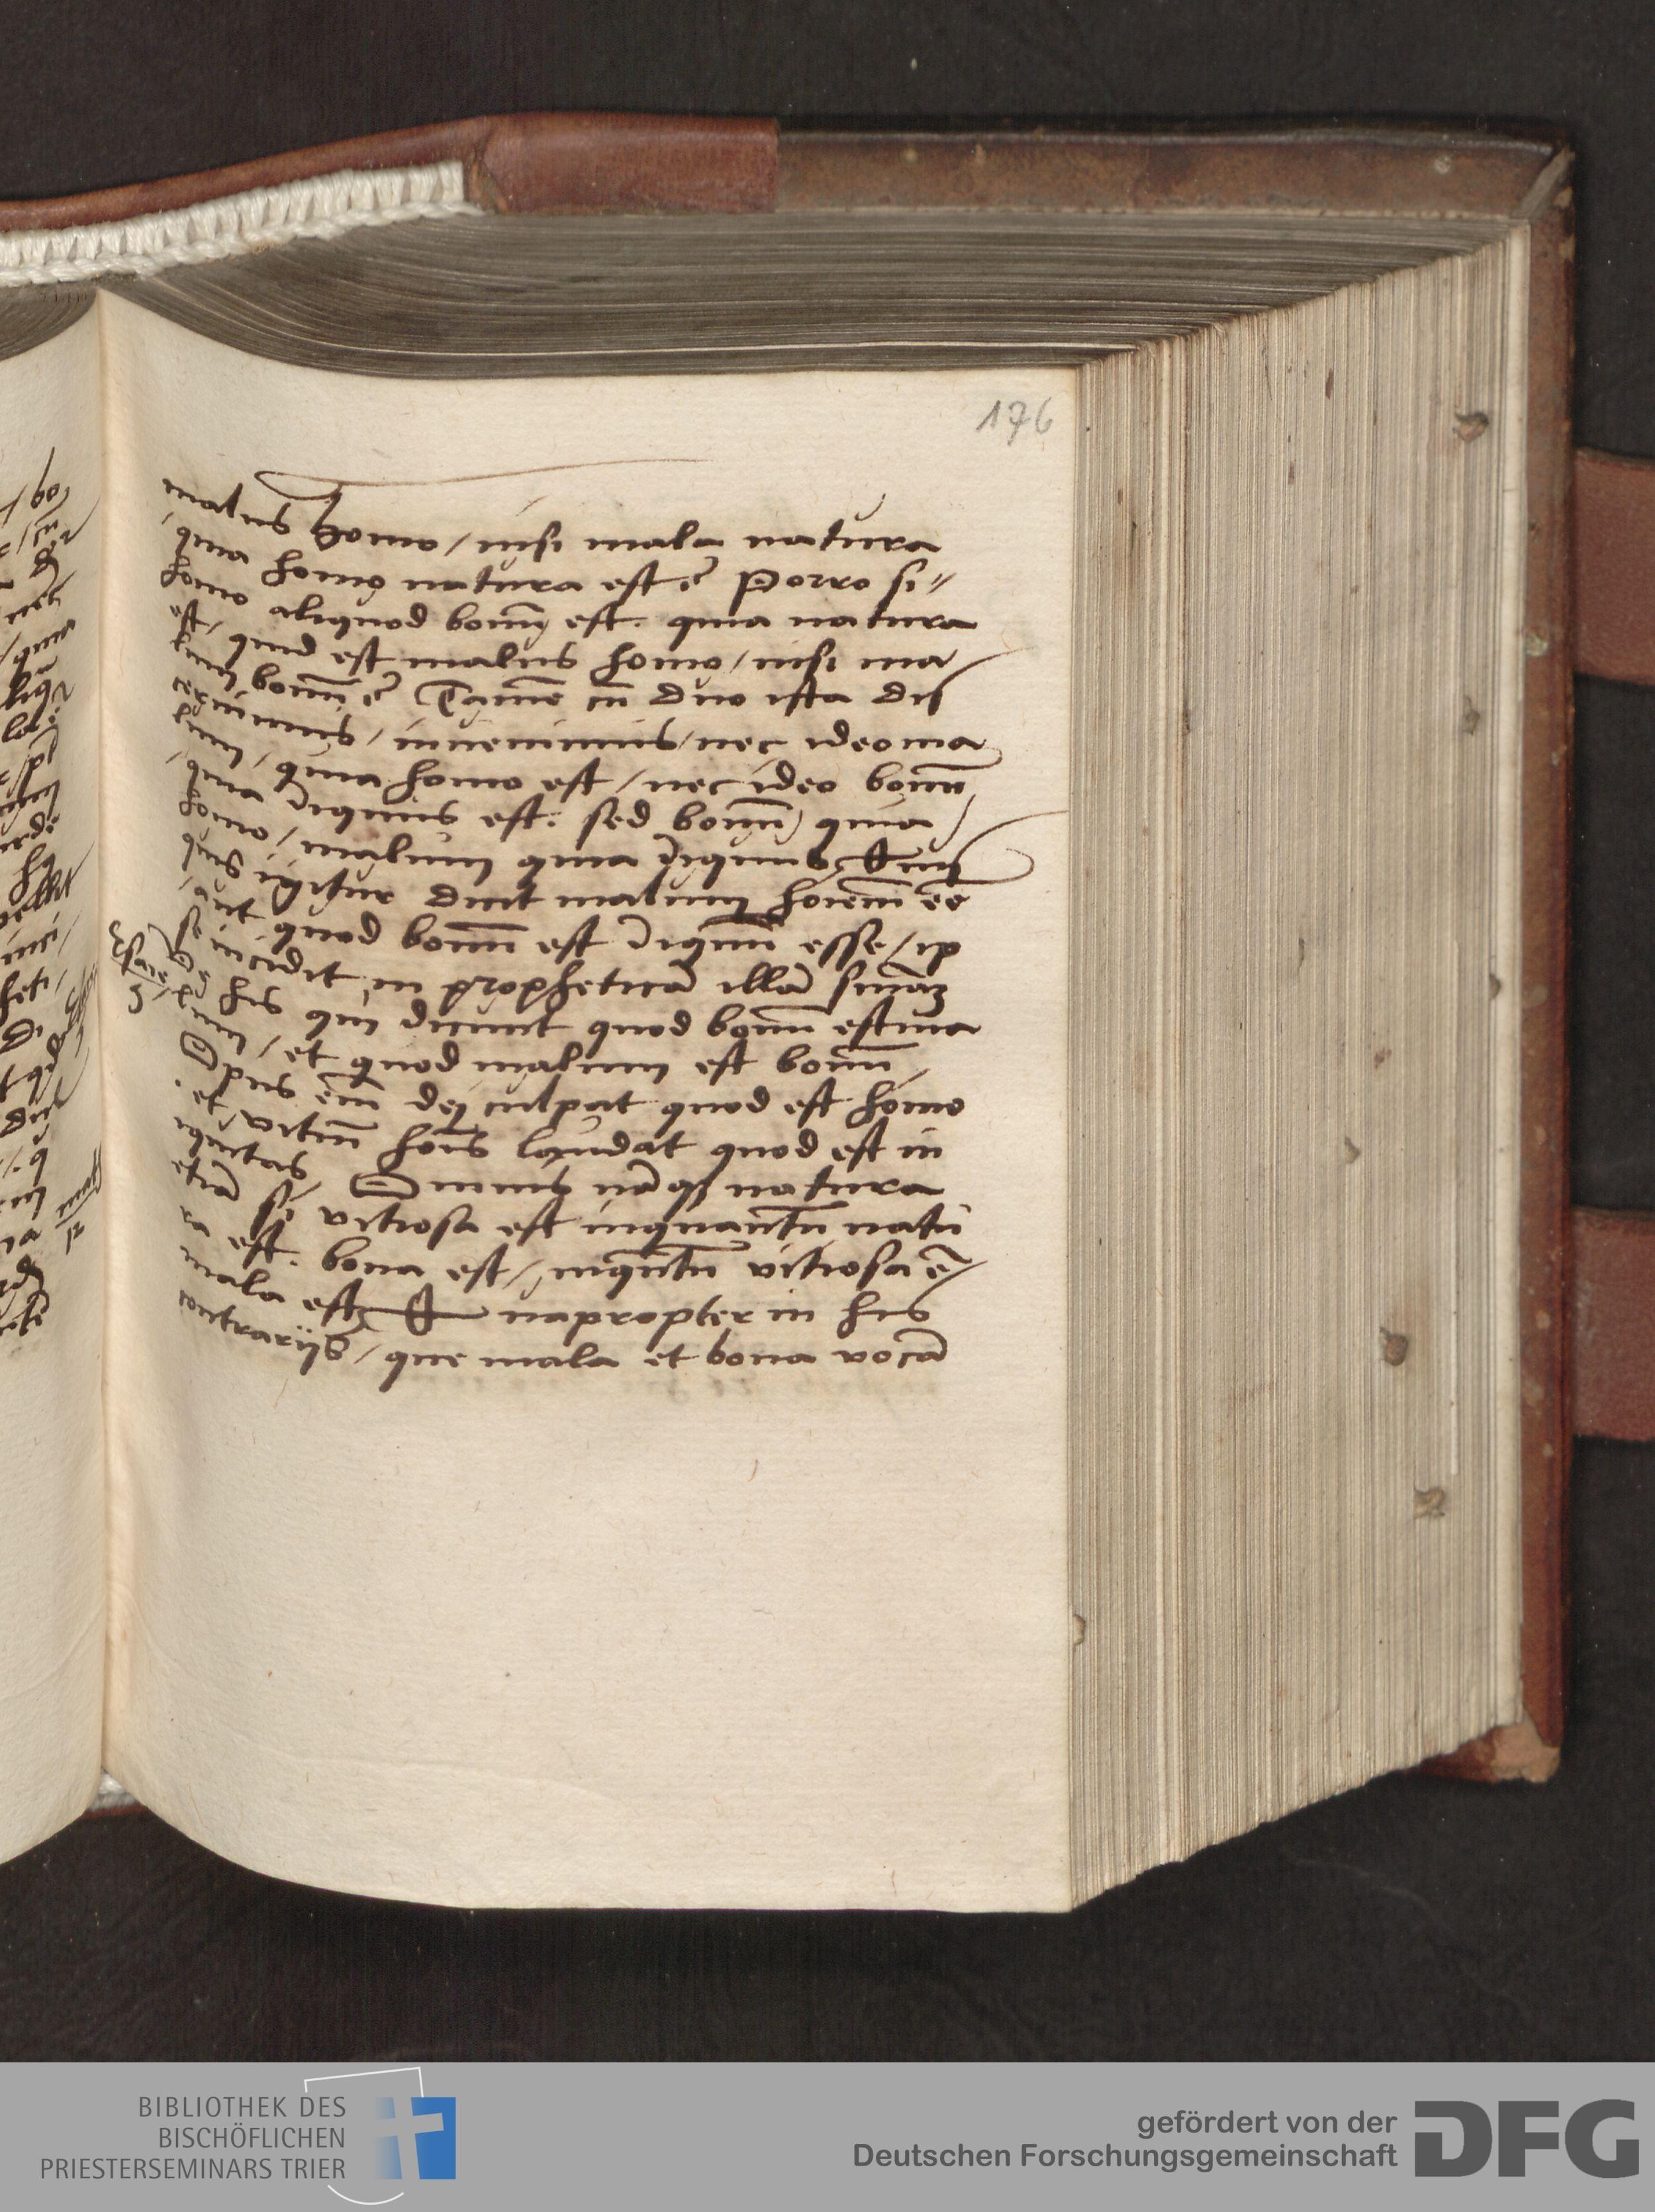 176
malus homo / nisi mala natura
quia homo natura est ē Porro si〃
homo aliquod bonū est. quia natura
est / quid est malus homo / nisi ma
lum bonū ē Tamē cū duo ista dis
cernimus / inuenimus / nec ideo ma
lum / quia homo est / nec ideo bonū
quia iniquus est. sed bonū quia
homo / malum quia iniquus Quis
quis igitur dicit malum hoiem eē
aut quod bonū est iniquū esse / ip
se incidit in propheticā illā sniāȝ
Esaie 5
Ve his qui dicunt quod bonū est ma
lum / et quod malum est bonū
Opus em̄ dei culpat quod est homo
et vitiū hoīs laudat quod est in
iquitas Omnis nāqȝ natura
etiā si vitiosa est inquantū natu
ra est. bona est / inqūtū vitiosa ē /
mala est Quapropter in his
contrarijs / que mala et bona vocā
BIBLIOTHEK DES
BISCHÖFLICHEN
PRIESTERSEMINARS TRIER
gefördert von der
Deutschen Forschungsgemeinschaft
DFG